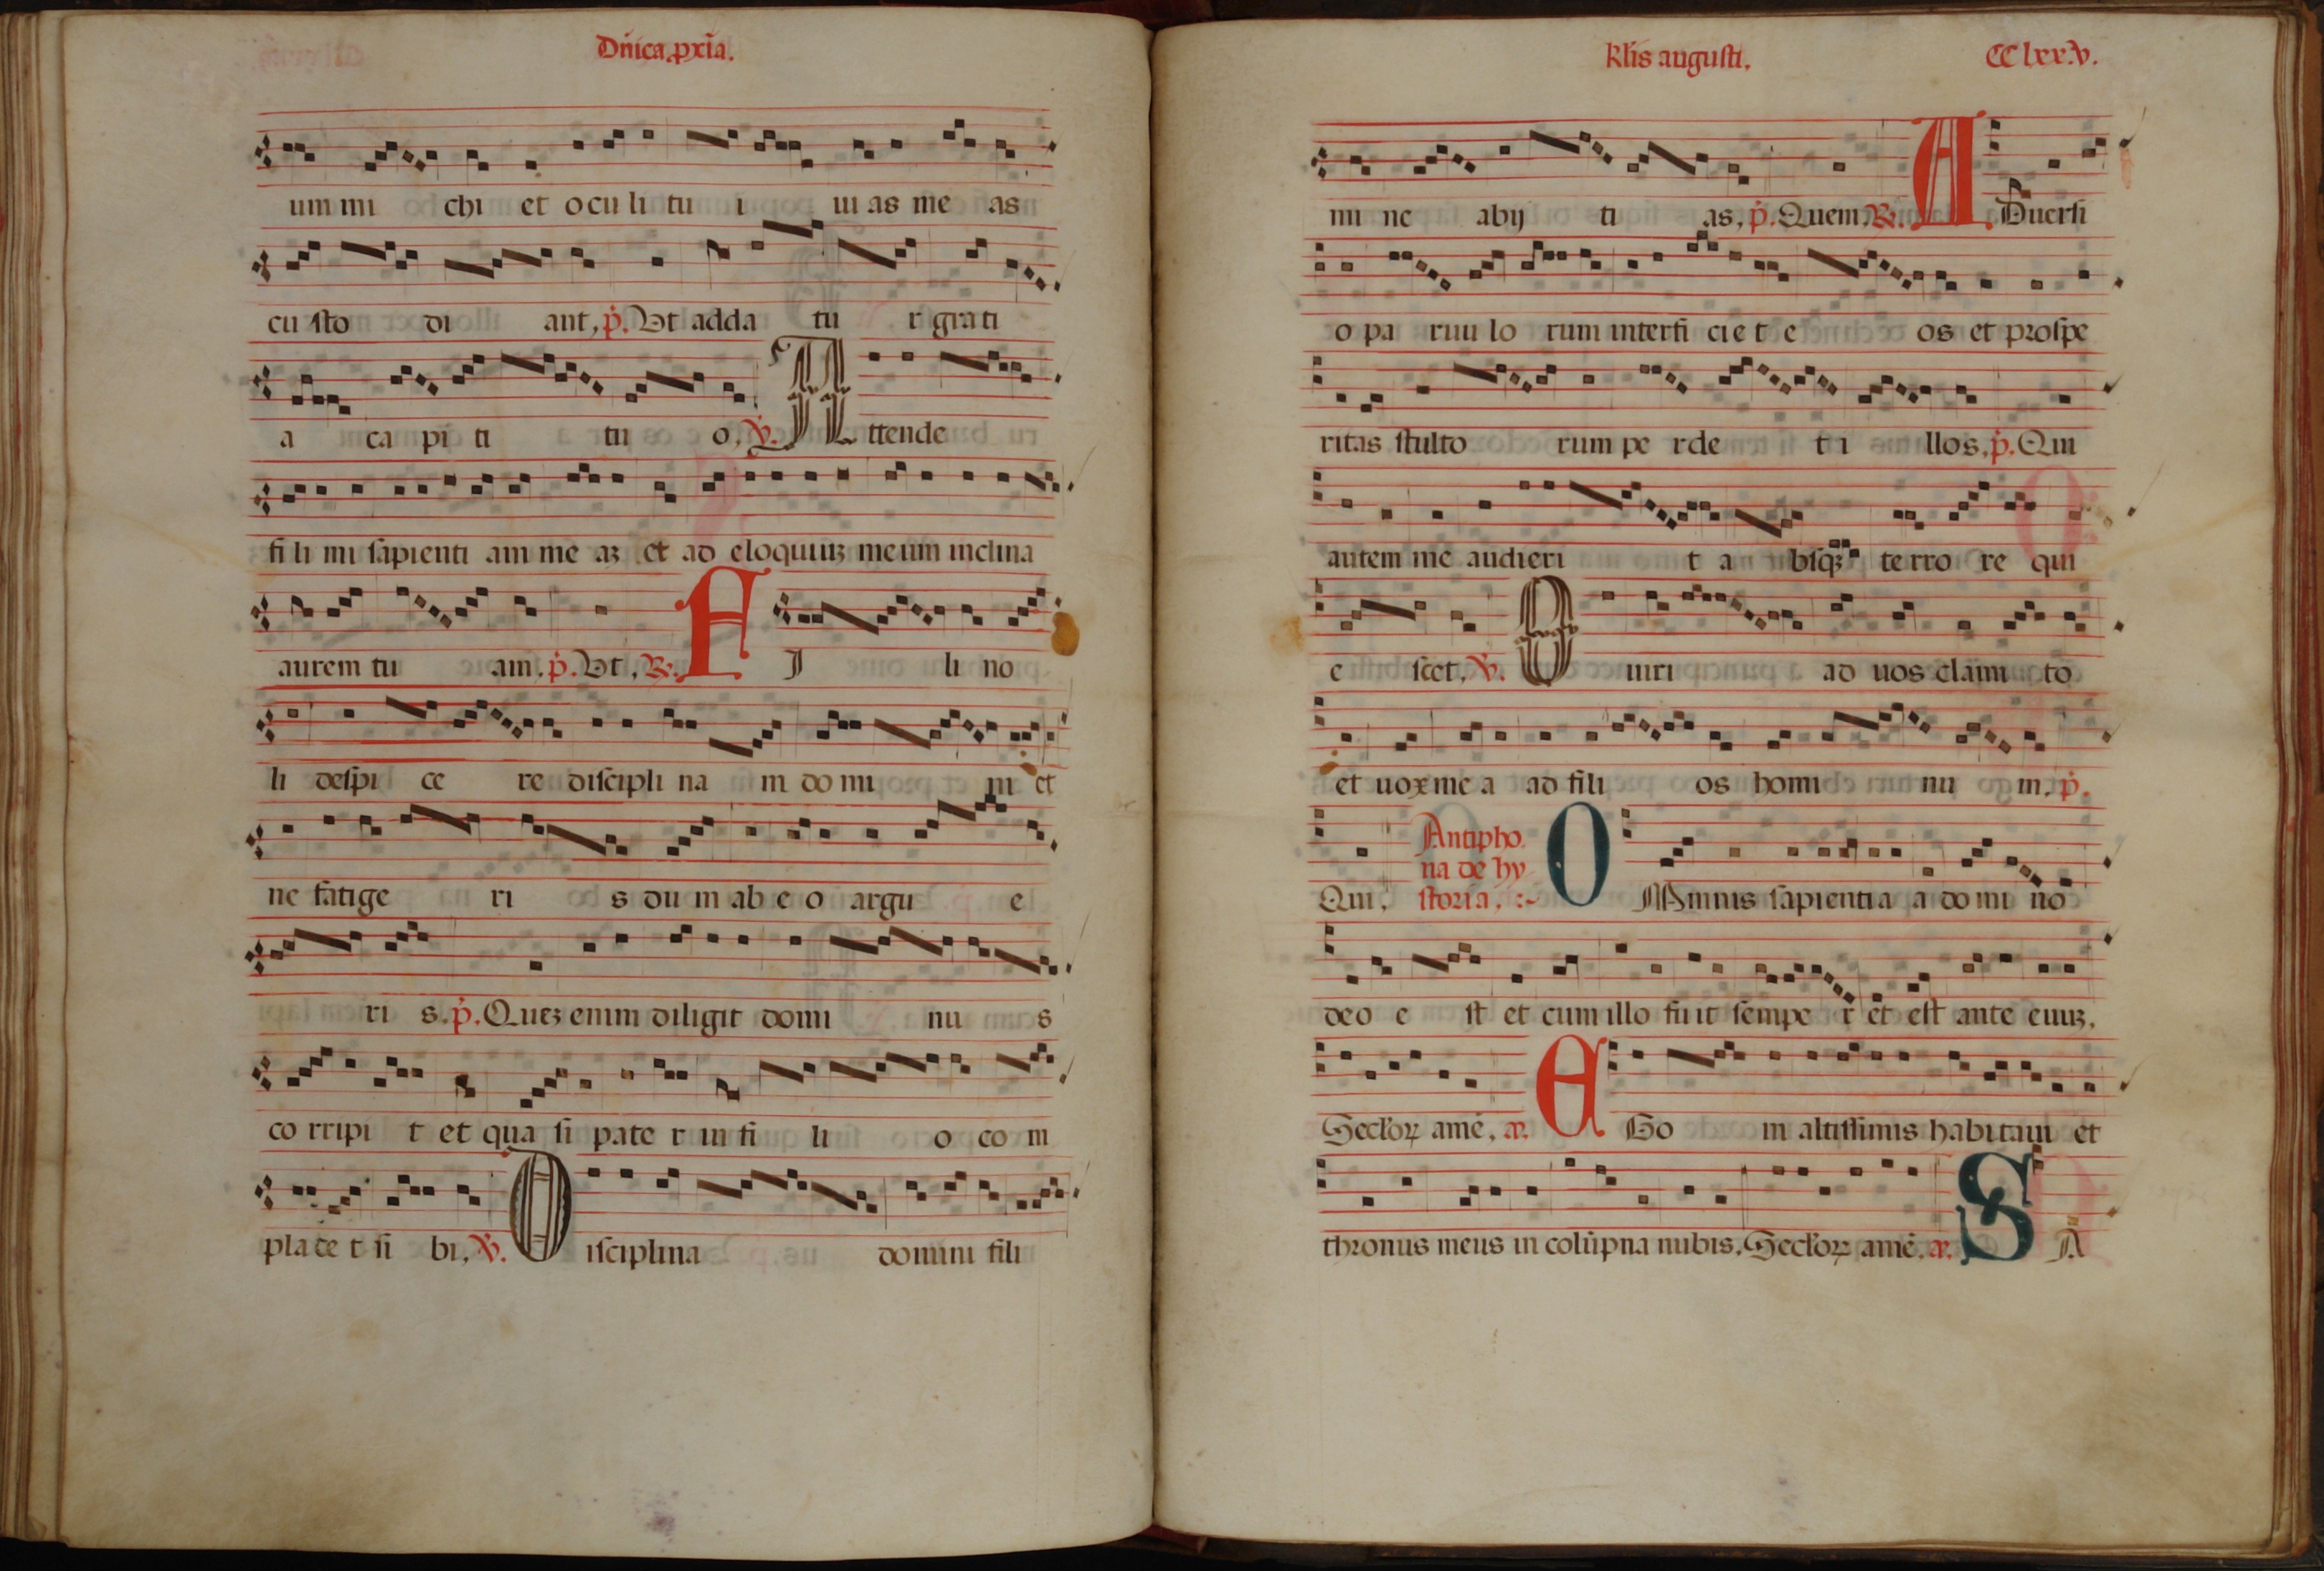 Dnica pxia.
um mi chi et oculi tu i ui as me as
cu sto di ant, p. Vt adda tu r grati
a ca pi ti tu o, V. A ttende
fi li mi sapienti am me aʒ et ad eloquiuʒ meum inclina
aurem tu am. p. Vt, R. F I li no
li despi ce re discipli na m do mi ni et
ne fatige ri s du m ab e o argu e
ri s. p. Queʒ enim diligit domi nu s
co rripi t et qua si pate r in fi li o co m
place t si bi, V. D isciplina domini fili
Klis augusti. CC lxx.v.
mi ne abij ti as, p. Quem, R. A Duersi
o pa ruu lo rum interfi cie t e os et prospe
ritas stulto rum pe rde t i llos, p. Qui
autem me audieri t a bsqʒ terro re qui
e scet, V. O uiri ad uos clami to
et uox me a ad fili os homi nu m, p.
Qui, Antipho
na de hy
storia, :~ O Mnis sapientia a do mi no
deo e st et cum illo fuit sempe r et est ante euuʒ,
Seclorꝝ ame, a. E Go in altissimis habitaui et
thronus meus in columpna nubis, Seclorꝝ ame, a. S A